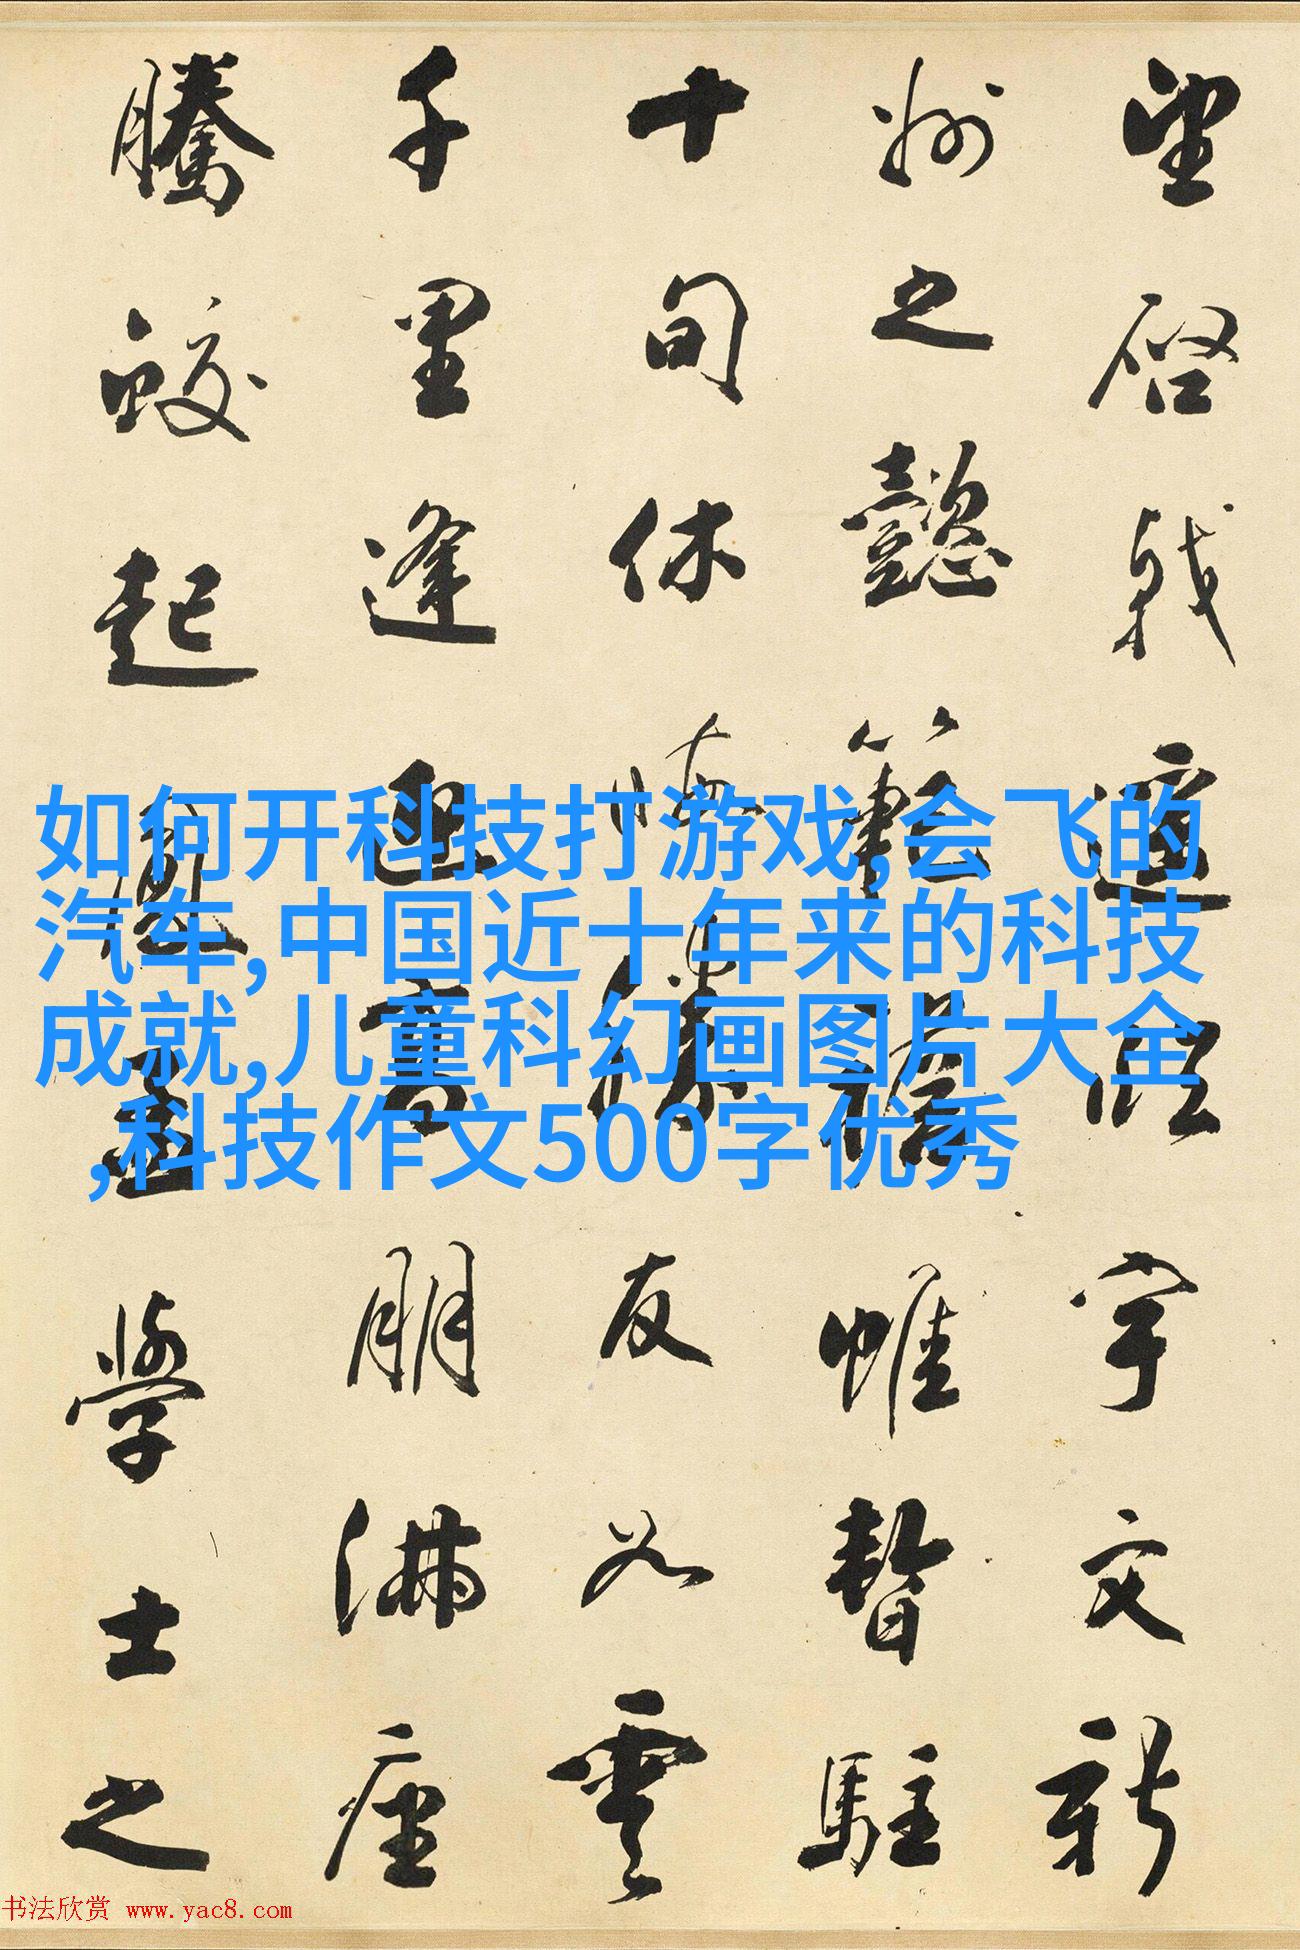 望啓戟遥臨宇文新
州之懿範襜帷暫駐
十旬休暇勝友如雲
千里逢迎高朋滿座
騰蛟起鳳孟學士之
如何开科技打游戏,会飞的
汽车,中国近十年来的科技
成就,儿童科幻画图片大全
,科技作文500字优秀
书法欣赏 www.yac8.com